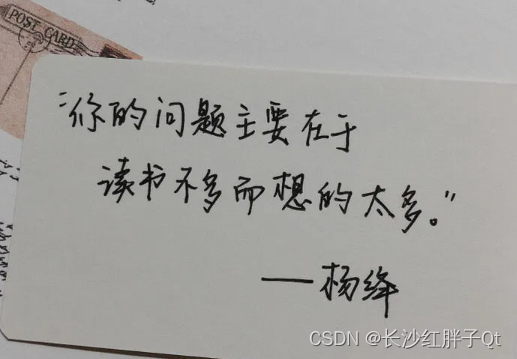 POST CARD
“你的问题主要在于
读书不多而想的太多。”
——杨绛
CSDN @长沙红胖子Qt